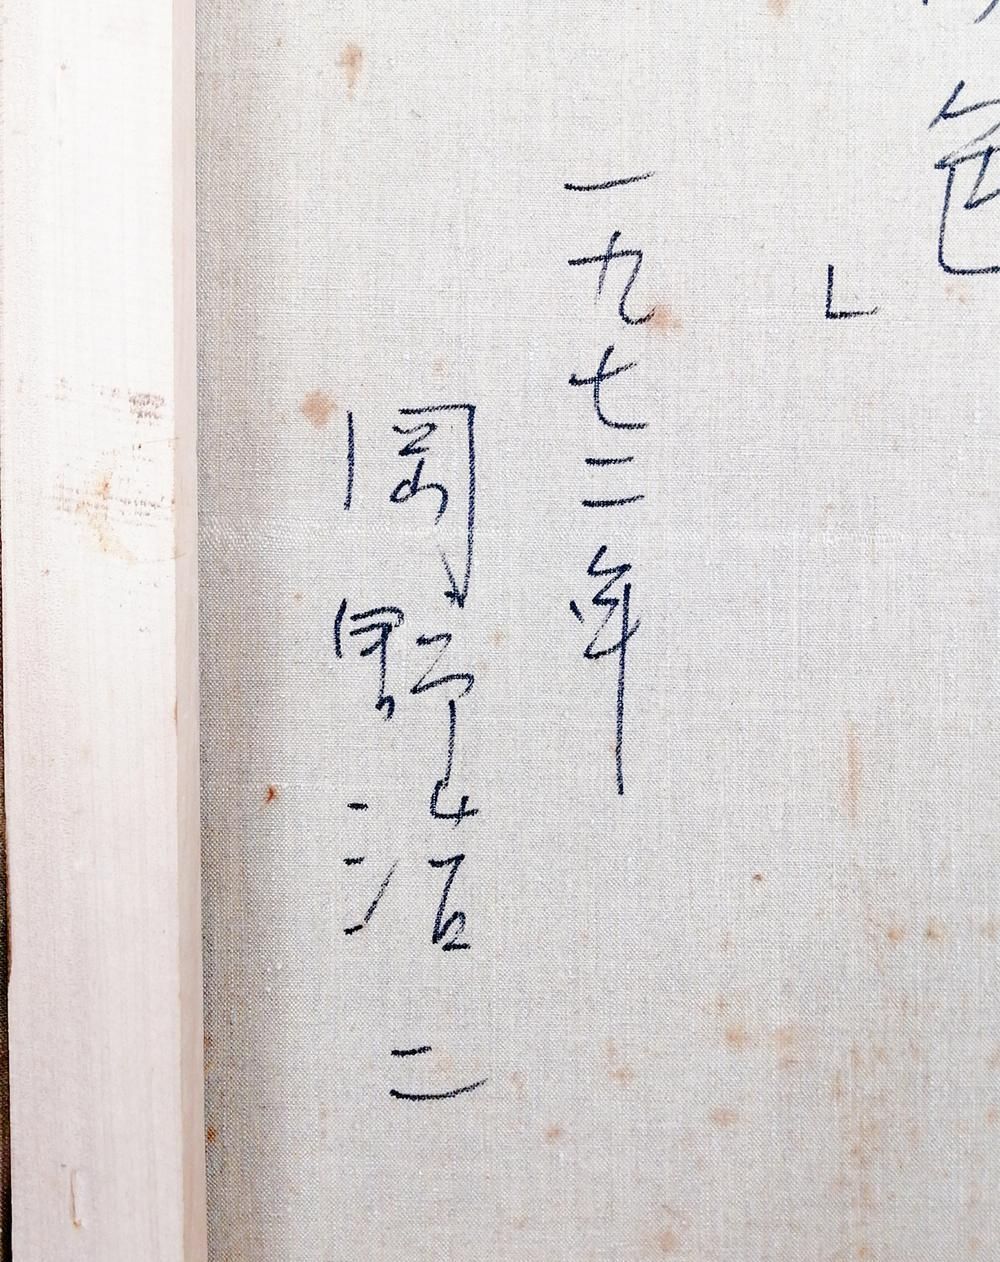 色」
一九七二年
岡野浩二